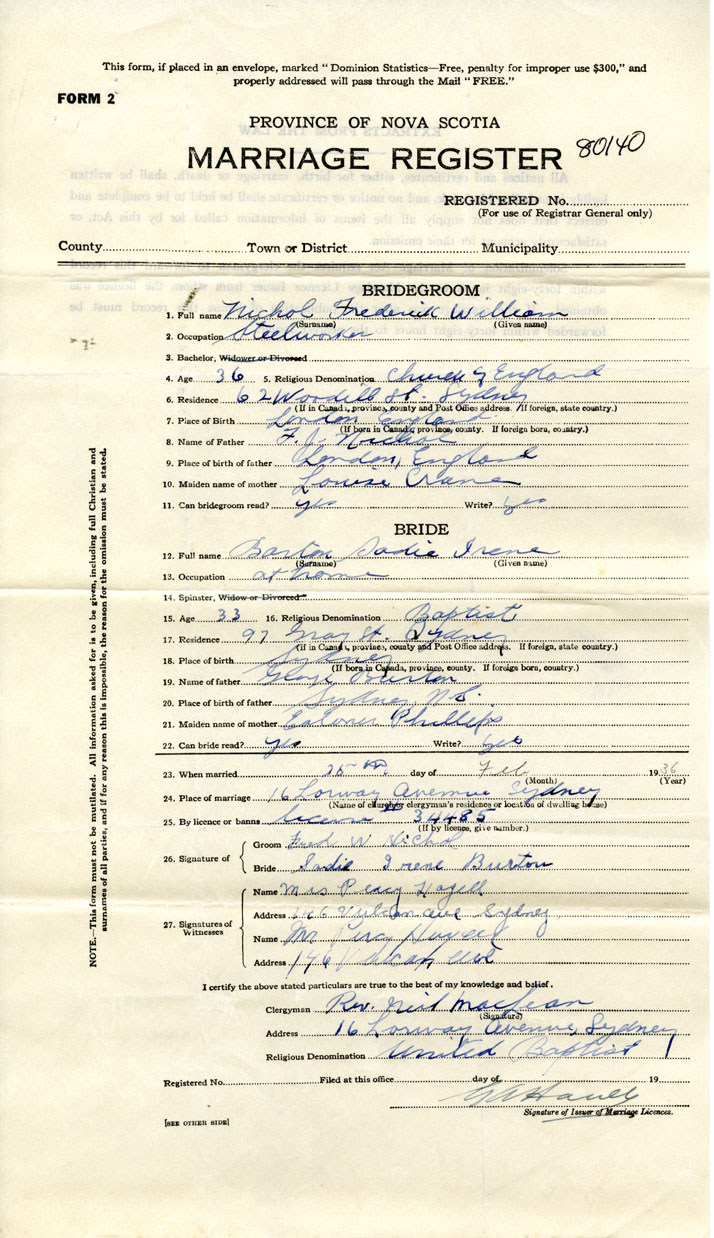 This form, if placed in an envelope, marked "Dominion Statistics—Free, penalty for improper use $300," and
properly addressed will pass through the Mail "FREE."
FORM 2
PROVINCE OF NOVA SCOTIA
MARRIAGE REGISTER 80140
REGISTERED No.
(For use of Registrar General only)
County Town or District Municipality
BRIDEGROOM
1. Full name Nichol Frederick William
(Surname) (Given name)
2. Occupation Steelworker
3. Bachelor, Widower or Divorced
4. Age 36 5. Religious Denomination Church of England
6. Residence 62 Woodill St. Sydney
(If in Canada, province, county and Post Office address. If foreign, state country.)
7. Place of Birth London England
(If born in Canada, province, county. If foreign born, country.)
8. Name of Father F. J. Nichol
9. Place of birth of father London, England
10. Maiden name of mother Louise Crane
11. Can bridegroom read? yes Write? yes
BRIDE
12. Full name Burton Sadie Irene
(Surname) (Given name)
13. Occupation at home
14. Spinster, Widow or Divorced
15. Age 33 16. Religious Denomination Baptist
17. Residence 97 Gray St. Sydney
(If in Canada, province, county and Post Office address. If foreign, state country.)
18. Place of birth Sydney
(If born in Canada, province, county. If foreign born, country.)
19. Name of father Burton
20. Place of birth of father Sydney N.S.
21. Maiden name of mother Phillips
22. Can bride read? yes Write? yes
23. When married 25th day of Feb 1936
(Month) (Year)
24. Place of marriage 16 Lorway Avenue Sydney
(Name of church or clergyman's residence or location of dwelling house)
25. By licence or banns licence 34485
(If by licence, give number.)
26. Signature of
Groom Fred W Nichol
Bride Sadie Irene Burton
27. Signatures of Witnesses
Name Mrs Percy
Address Vulcan Ave Sydney
Name Mr Percy
Address Vulcan Ave
I certify the above stated particulars are true to the best of my knowledge and belief.
Clergyman Rev. Neil MacLean
(Signature)
Address 16 Lorway Avenue, Sydney
Religious Denomination United Baptist
Registered No. Filed at this office day of 19
Signature of Issuer of Marriage Licences.
[SEE OTHER SIDE]
NOTE.—This form must not be mutilated. All information asked for is to be given, including full Christian and
surnames of all parties, and if for any reason this is impossible, the reason for the omission must be stated.